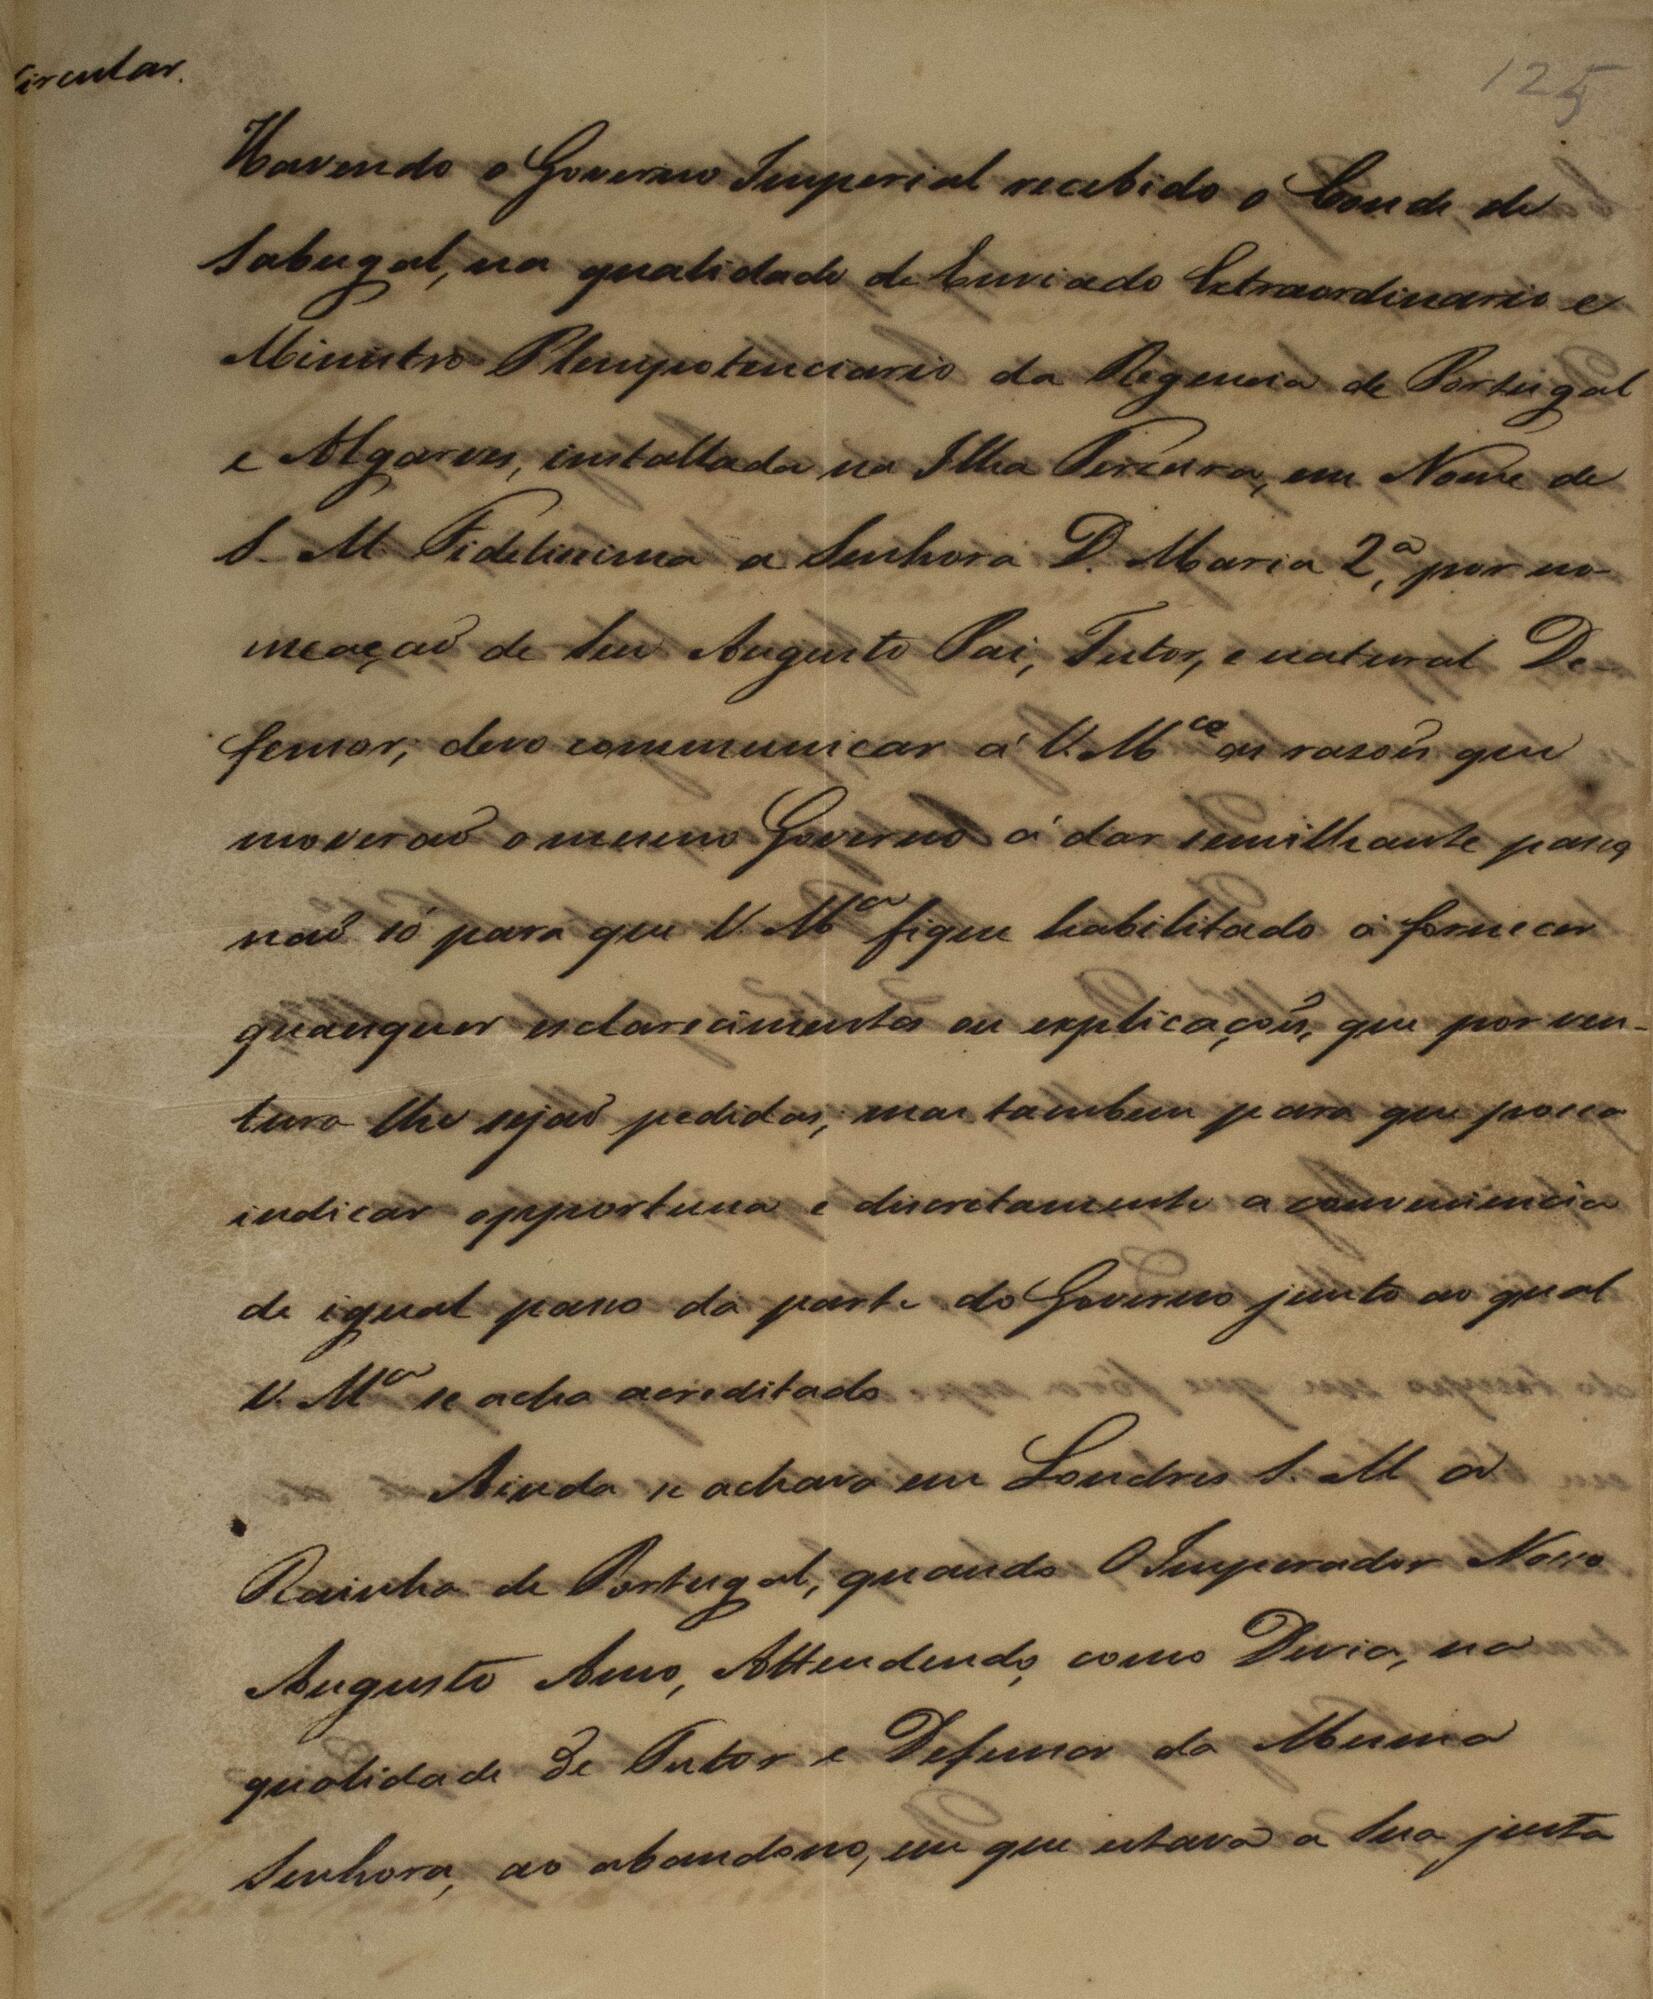 Circular.
125
Havendo o Governo Imperial recebido o Conde de
Sabugal, na qualidade de Enviado Extraordinario e
Ministro Plenipotenciario da Regencia de Portugal
e Algarves, installada na Ilha Terceira, em Nome de
S. M. Fidelissima a Senhora D. Maria 2.ª, por no-
meação de Seu Augusto Pai, Tutor, e natural De-
fensor; devo communicar á V. M.ce as rasoẽs que
moveraõ o mesmo Governo á dar semilhante passo,
naõ só para que V. M.ce fique habilitado á fornecer
quaesquer esclarecimentos ou explicaçoẽs, que porven-
tura lhe sejaõ pedidas; mas tambem para que possa
indicar opportuna e discretamente a conveniencia
de igual passo da parte do Governo junto ao qual
V. M.ce se acha acreditado
Ainda se achava em Londres S. M. a
Rainha de Portugal, quando O Imperador Nosso
Augusto Amo, Attendendo, como Devia, na
qualidade de Tutor e Defensor da Mesma
Senhora, ao abandono, em que estava a Sua justa